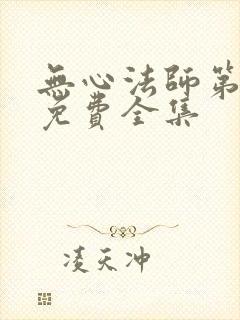 無心法師第
免費全集
凌天冲